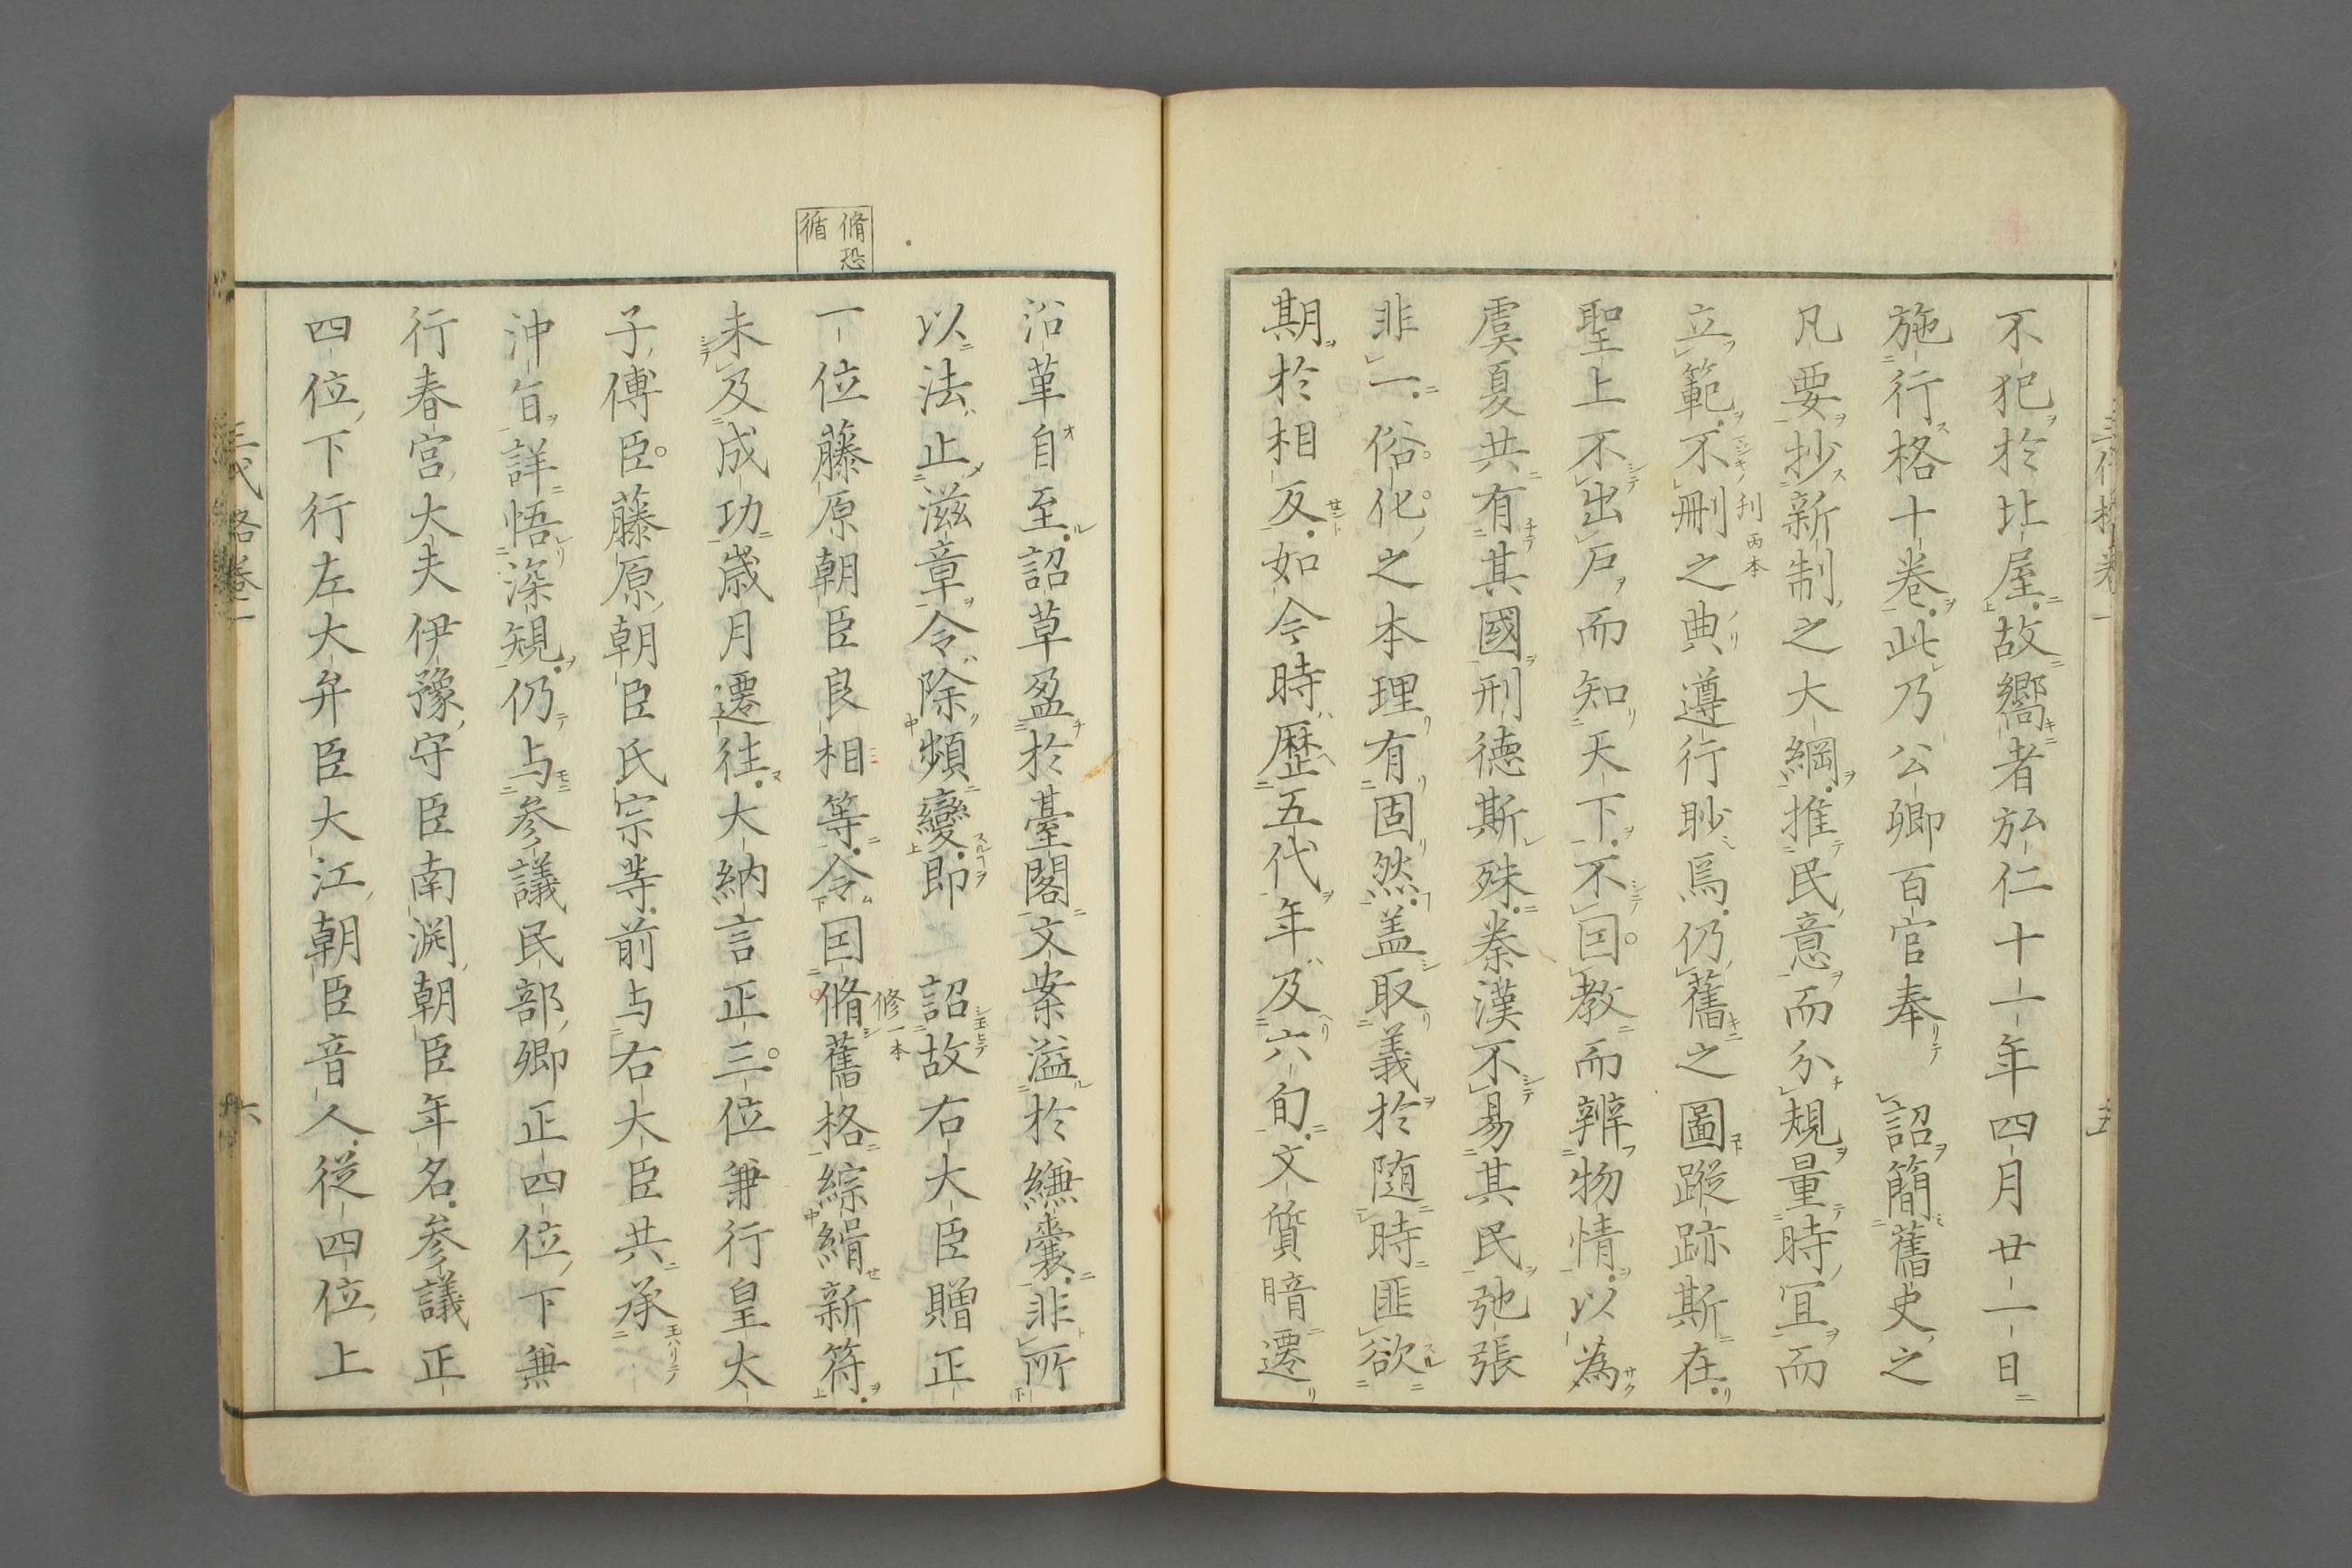 不犯於比屋故嚮者弘仁十一年四月廿一日
施行格十卷此乃公卿百官奉　詔簡舊史之
凡要抄新制之大綱推民意而分規量時冝而
立範不刪之典遵行眇焉仍舊之圖蹤跡斯在
刊兩本
聖上不出戸而知天下不囙教而辨物情以為
虞夏共有其國刑德斯殊秦漢不易其民弛張
非一俗化之本理有固然盖取義於随時匪欲
期於相反如今時歴五代年及六旬文質暗遷
三代格卷一
五
脩恐
循
沿革自至詔草盈於臺閣文案溢於縑囊非所
以法止滋章令除頻變即　詔故右大臣贈正
一位藤原朝臣良相等令囙脩舊格綜緝新符
修一本
未及成功歳月遷往大納言正三位兼行皇太
子傅臣藤原朝臣氏宗等前与右大臣共承
沖旨詳悟深規仍与参議民部卿正四位下兼
行春宮大夫伊豫守臣南渕朝臣年名参議正
四位下行左大弁臣大江朝臣音人從四位上
三代格卷一
六